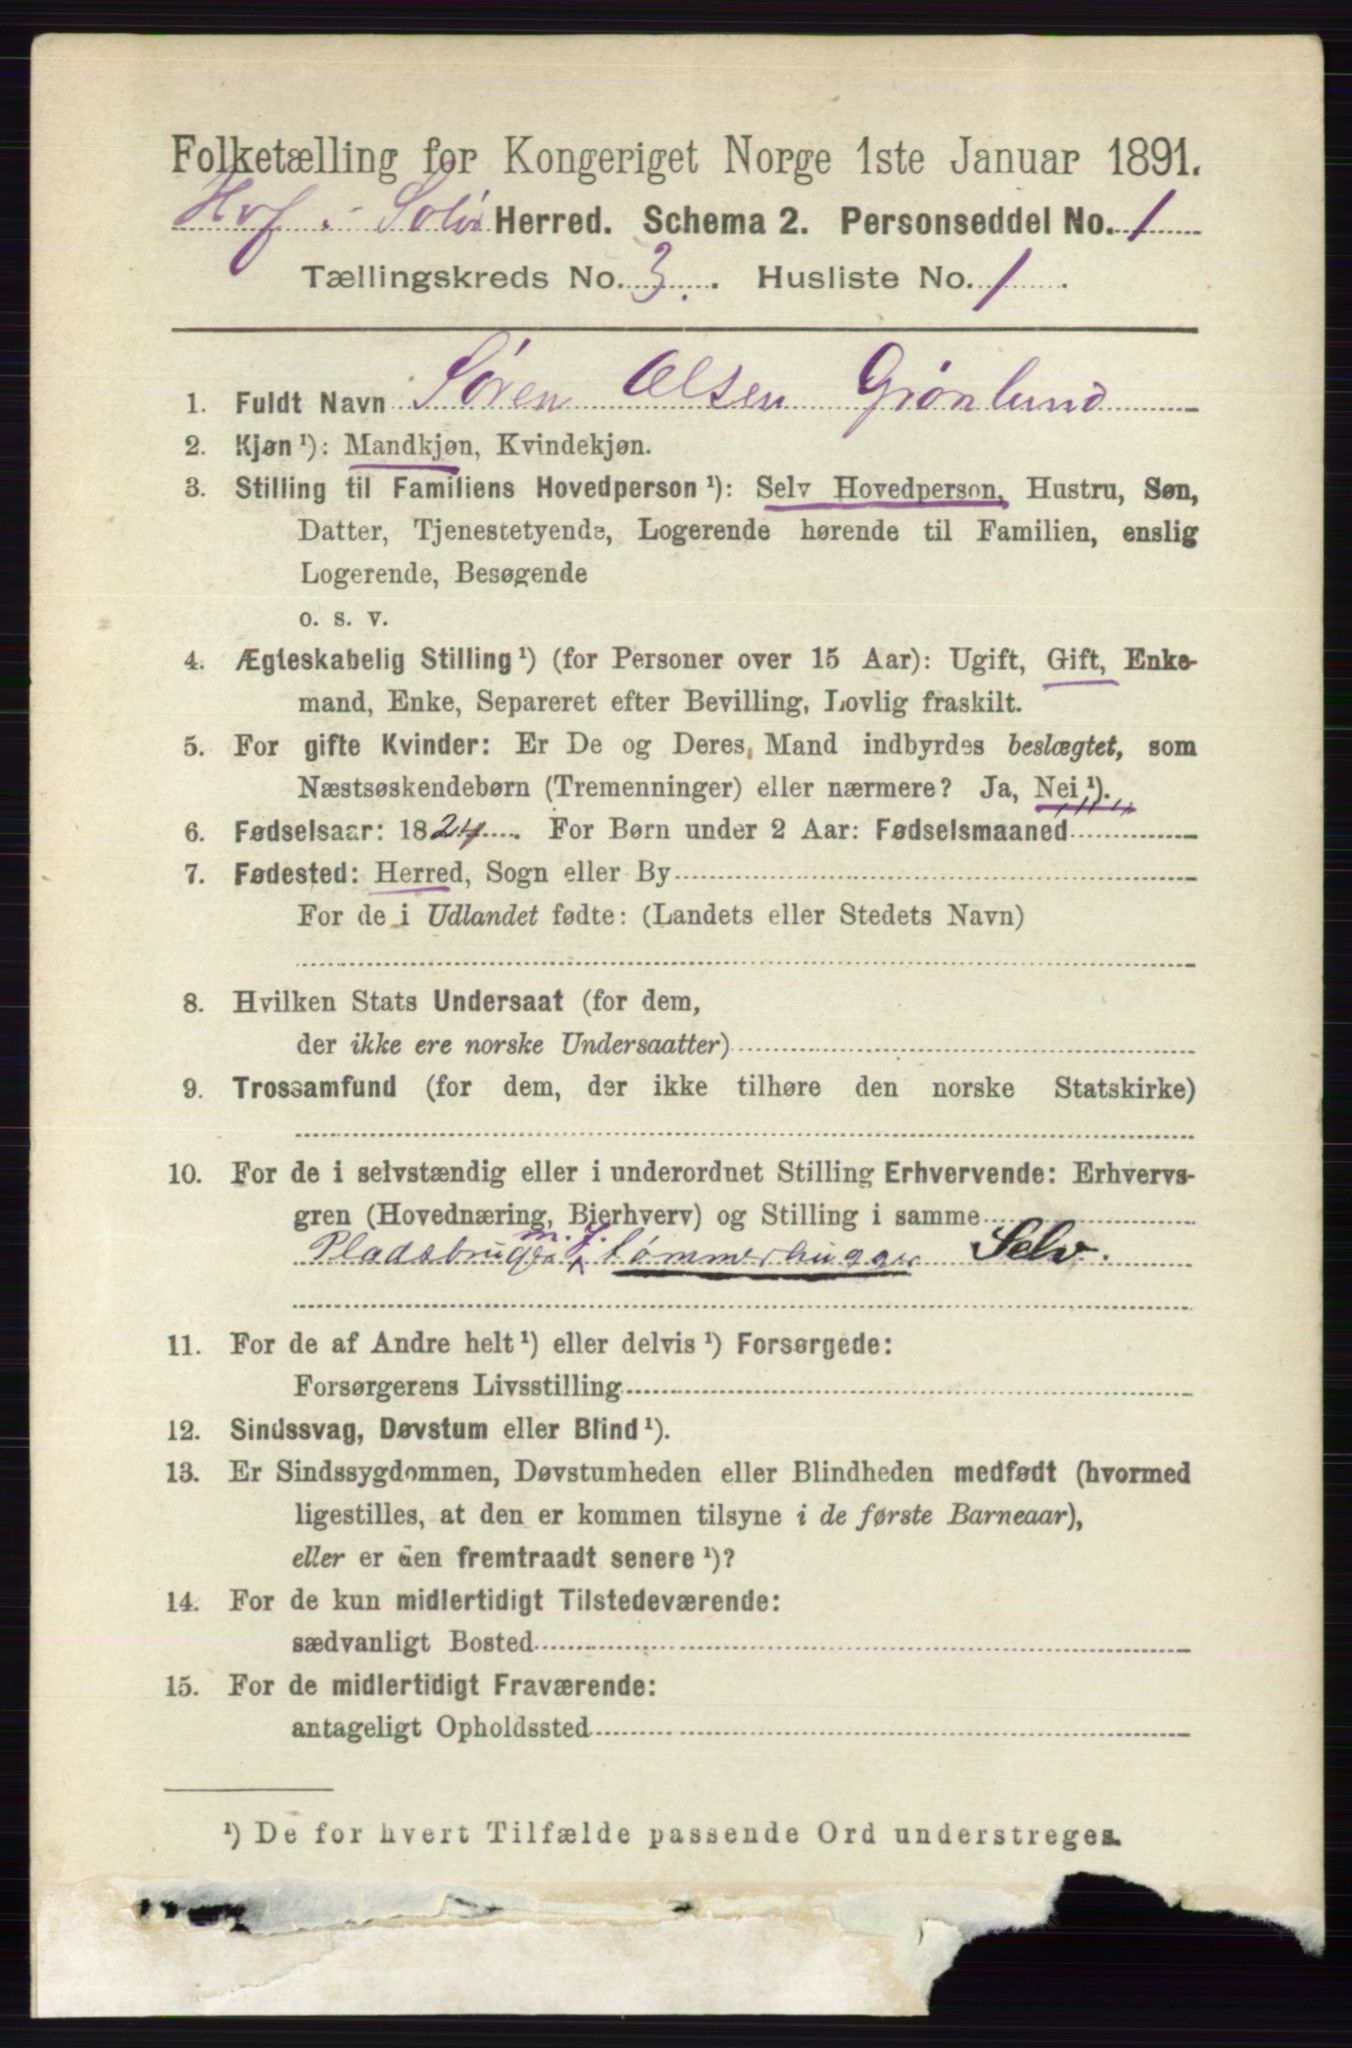 Folketælling for Kongeriget Norge 1ste Januar 1891.
Hof i Solør Herred. Schema 2. Personseddel No. 1
Tællingskreds No. 3. Husliste No. 1.
1. Fuldt Navn Søren Olsen Grønlund
2. Kjøn ¹): Mandkjøn, Kvindekjøn.
3. Stilling til Familiens Hovedperson ¹): Selv Hovedperson, Hustru, Søn,
Datter, Tjenestetyende, Logerende hørende til Familien, enslig
Logerende, Besøgende
o. s. v.
4. Ægteskabelig Stilling ¹) (for Personer over 15 Aar): Ugift, Gift, Enke-
mand, Enke, Separeret efter Bevilling, Lovlig fraskilt.
5. For gifte Kvinder: Er De og Deres Mand indbyrdes beslægtet, som
Næstsøskendebørn (Tremenninger) eller nærmere? Ja, Nei ¹).
6. Fødselsaar: 1824. For Børn under 2 Aar: Fødselsmaaned
7. Fødested: Herred, Sogn eller By
For de i Udlandet fødte: (Landets eller Stedets Navn)
8. Hvilken Stats Undersaat (for dem,
der ikke ere norske Undersaatter)
9. Trossamfund (for dem, der ikke tilhøre den norske Statskirke)
10. For de i selvstændig eller i underordnet Stilling Erhvervende: Erhvervs-
gren (Hovednæring, Bierhverv) og Stilling i samme
m. J.
Pladsbruger tømmerhugger Selv.
11. For de af Andre helt ¹) eller delvis ¹) Forsørgede:
Forsørgerens Livsstilling
12. Sindssvag, Døvstum eller Blind ¹).
13. Er Sindssygdommen, Døvstumheden eller Blindheden medfødt (hvormed
ligestilles, at den er kommen tilsyne i de første Barneaar),
eller er den fremtraadt senere ¹)?
14. For de kun midlertidigt Tilstedeværende:
sædvanligt Bosted
15. For de midlertidigt Fraværende:
antageligt Opholdssted
¹) De for hvert Tilfælde passende Ord understreges.